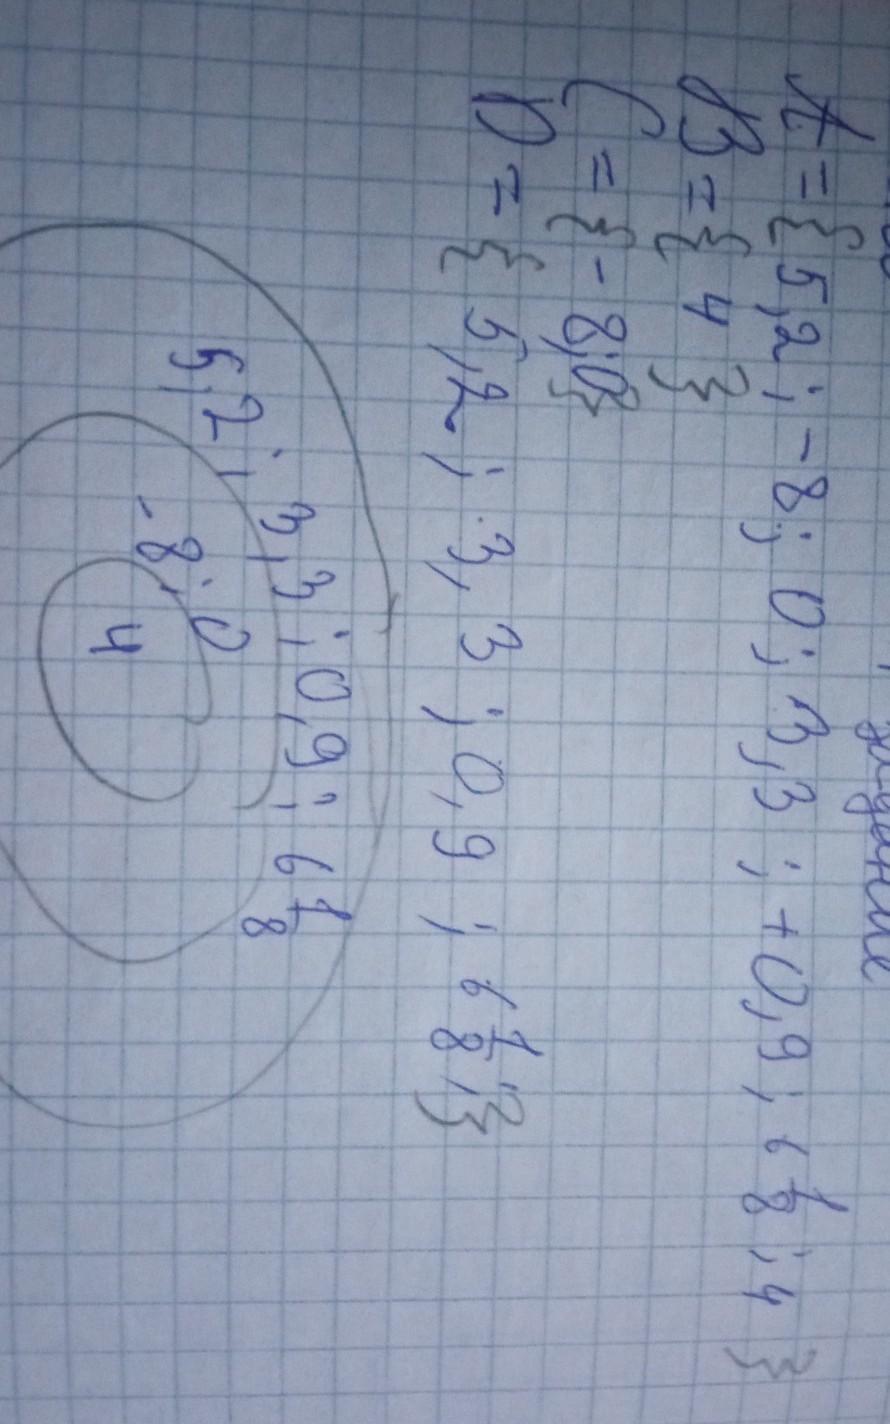 задание
A = { 5,2 ; -8 ; 0 ; 3,3 ; +0,9 ; 6 1/8 ; 4 }
B = { 4 }
C = { -8 ; 0 }
D = { 5,2 ; 3,3 ; 0,9 ; 6 1/8 ; }
5,2 ; 3,3 ; 0,9 ; 6 1/8
-8 ; 0
4